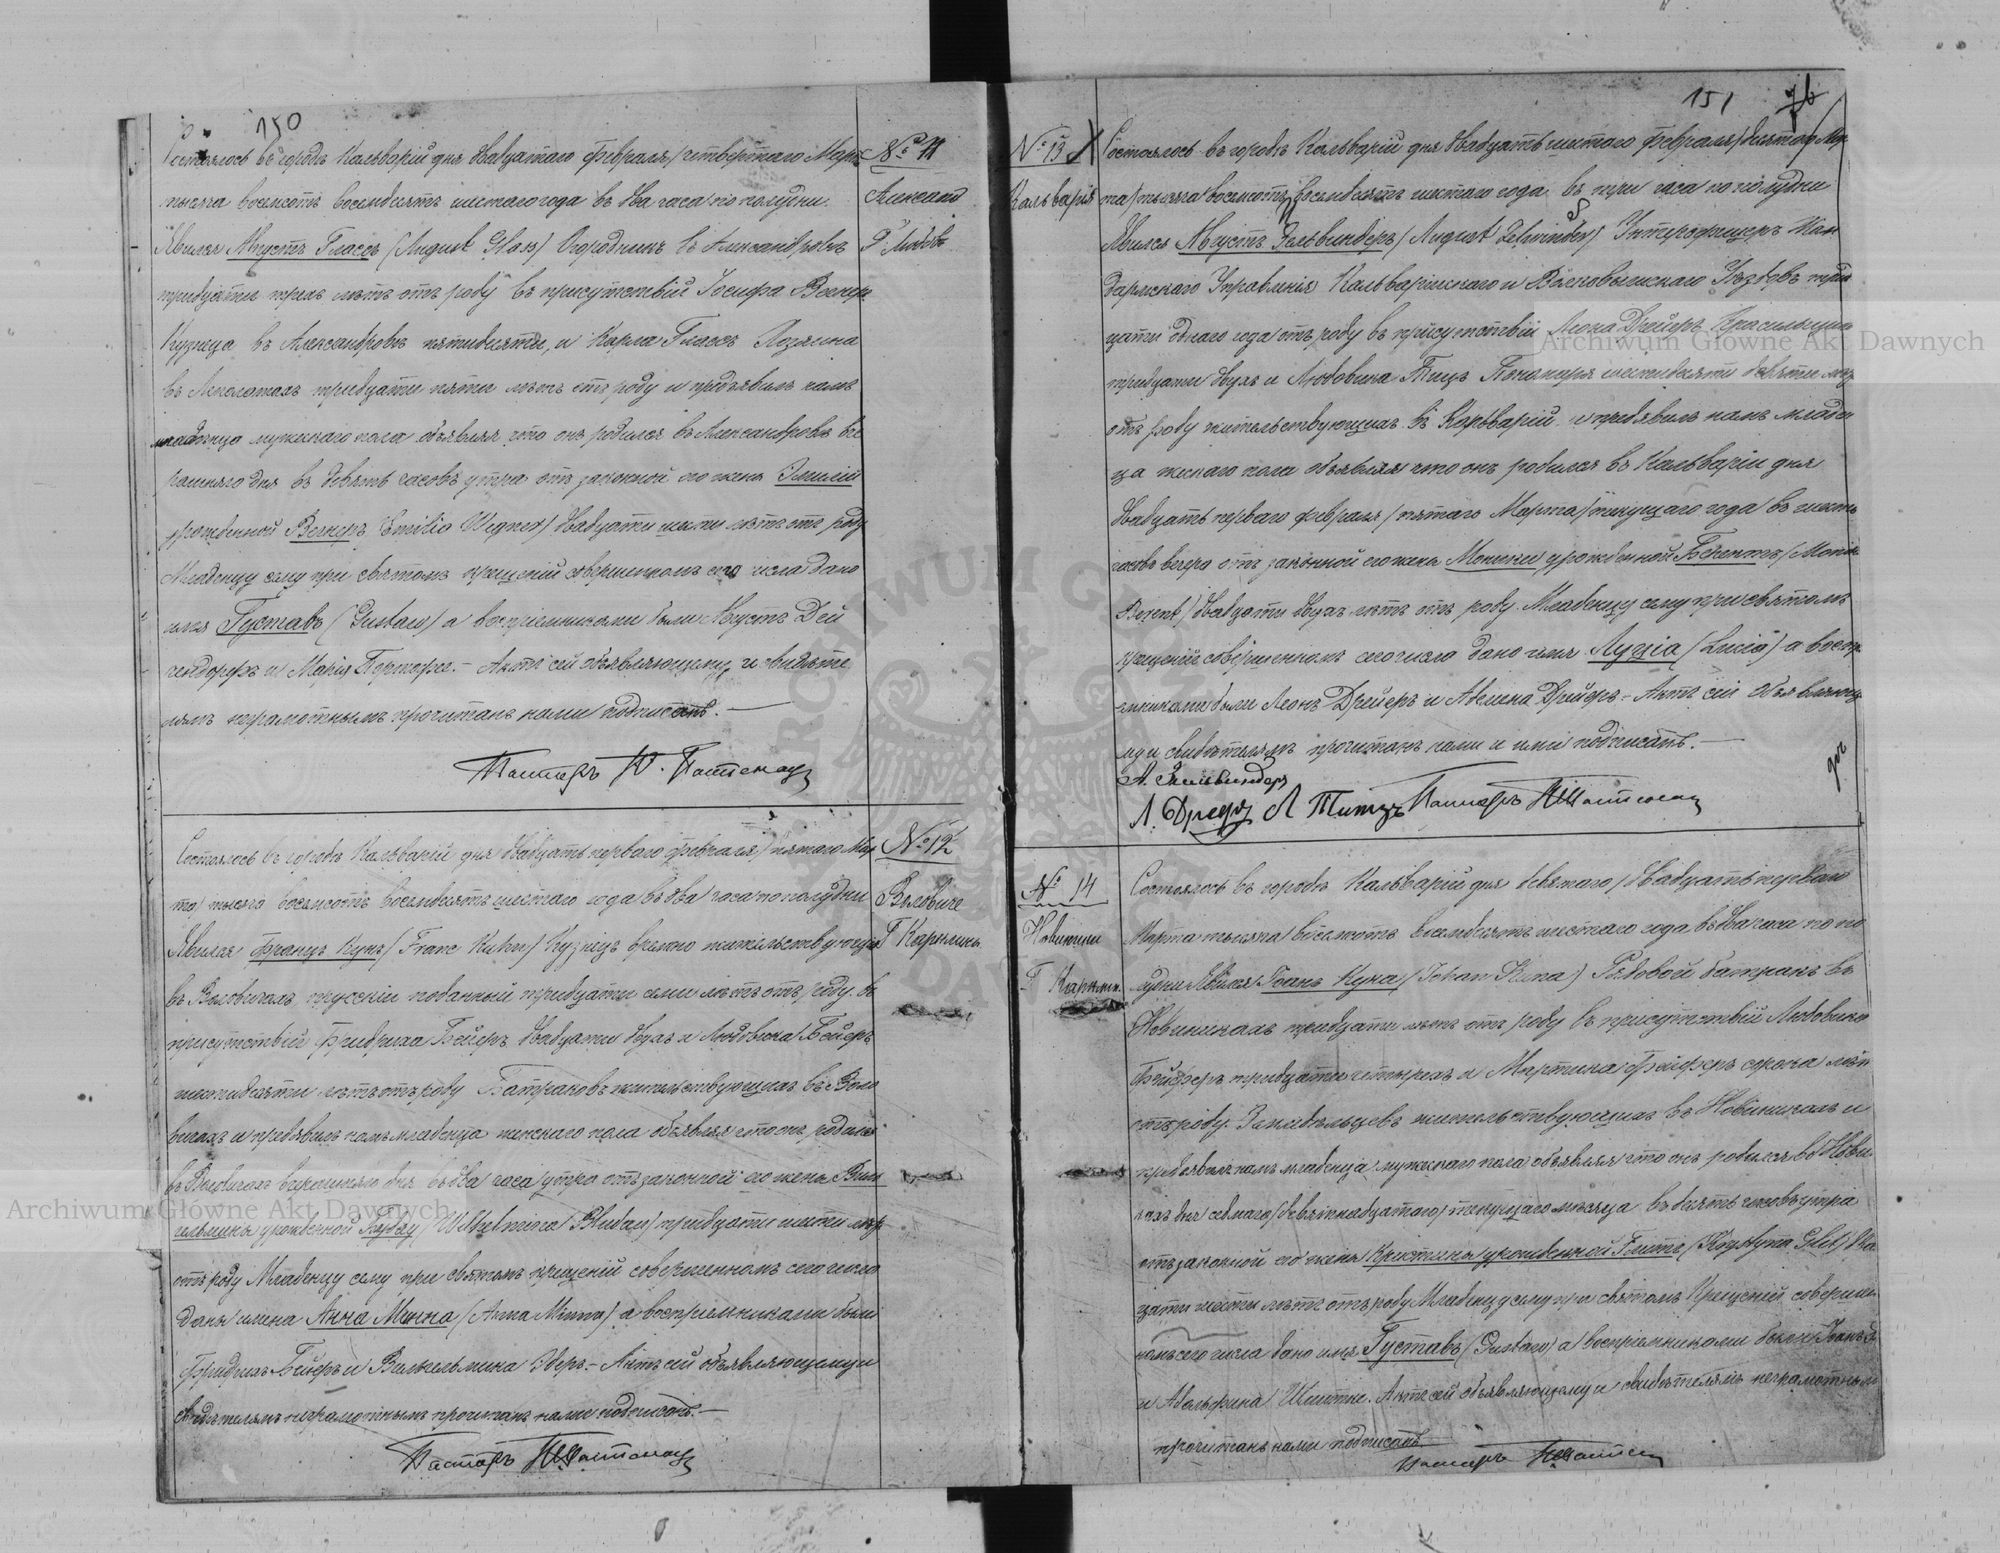 150
Состоялось въ городѣ Кальваріи дня двадцатаго Февраля /четвертаго Мар
тысяча восемсотъ восемдесятъ шестаго года въ два часа по полудни.
Явился Августъ Глассъ (August Glass) Огородникъ въ Александровѣ
тридцати трехъ лѣтъ отъ роду въ присутствіи Іосифа Вегнеръ
Кузнеца въ Александровѣ пятидесяти, и Карла Глассъ Хозяина
въ тридцати пяти лѣтъ отъ роду и предъявилъ намъ
младенца мужескаго пола объявляя что онъ родился въ Александровѣ вче
рашняго дня въ девять часовъ утра отъ законной его жены Эмиліи
урожденной Вегнеръ (Emilia Wegner) двадцати лѣтъ отъ роду
Младенцу сему при святомъ крещеніи совершенномъ сего числа дано
имя Густавъ (Gustaw) а воспріемниками были Августъ Дей
и Марія – Актъ сей объявляющему и свидѣте
лямъ неграмотнымъ прочитанъ нами подписанъ. —
Пасторъ
№ 11
Александ
Состоялось въ городѣ Кальваріи дня двадцать перваго Февраля / пятаго Мар
та/ тысяча восемсотъ восемдесятъ шестаго года въ два часа по полудни
Явился Францъ Кунъ (Franc Kuhn) Кузнецъ временно жительствующій
въ Воловичахъ, прусскій поданный тридцати семи лѣтъ отъ роду въ
присутствіи Фридриха Бейеръ двадцати двухъ и Людвика Бейеръ
шестидесяти лѣтъ отъ роду Батраковъ жительствующихъ въ Воло
вичахъ и предъявилъ намъ младенца женскаго пола объявляя что онъ родился
въ Воловичахъ вчерашняго дня въ два часа утра отъ законной его жены Виль
гельмины урожденной (Wilhelmina) тридцати шести лѣтъ
отъ роду Младенцу сему при святомъ крещеніи совершенномъ сего числа
даны имена Анна Минна (Anna Minna) а воспріемниками были
Фридрихъ Бейеръ и Вильгельмина – Актъ сей объявляющему и
свидѣтелямъ неграмотнымъ прочитанъ нами подписанъ. —
Пасторъ
№ 12
Воловиче
151
№ 13
Кальварія
Состоялось въ городѣ Кальваріи дня двадцать шестаго Февраля /десятаго Мар
та/ тысяча восемсотъ восемдесятъ шестаго года въ три часа по полудни
Явился Августъ Зельвиндеръ (August Zelwinder) Унтерофицеръ Жан
дармскаго Управленія Кальварійскаго и Волковышскаго Уѣздовъ трид
цати однаго года отъ роду въ присутствіи Леона Дрейеръ
тридцати двухъ и Людовика Тицъ Пономаря шестидесяти девяти лѣтъ
отъ роду жительствующихъ въ Кальваріи и предъявилъ намъ младен
ца женскаго пола объявляя что онъ родился въ Кальваріи дня
двадцать перваго февраля /пятаго Марта/ текущаго года въ шесть
часовъ вечера отъ законной его жены Моники урожденной Берентъ (Monika
Berent) двадцати двухъ лѣтъ отъ роду. Младенцу сему при святомъ
крещеніи совершенномъ сего числа дано имя Луція (Lucia) а воспр
емниками были Леонъ Дрейеръ и Дрейеръ – Актъ сей объявляющ
му и свидѣтелямъ прочитанъ нами и ими подписанъ. —
А. Зельвиндеръ
Л. Дрейеръ Л Титцъ Пасторъ
№ 14
Новинники
Состоялось въ городѣ Кальваріи дня девятаго /двадцать перваго
Марта тысяча восемсотъ восемдесятъ шестаго года въ два часа по по
лудни Явился Іоанъ Куна (Johan Kuna) Рядовой батракъ въ
Новинникахъ тридцати лѣтъ отъ роду въ присутствіи Людовика
Фейферъ тридцати четырехъ и Мартина Фейферъ сорока лѣтъ
отъ роду Земледѣльцевъ жительствующихъ въ Новинникахъ и
предъявилъ намъ младенца мужескаго пола объявляя что онъ родился въ Новин
кахъ дня седмаго /девятнадцатаго/ текущаго мѣсяца въ десять часовъ утра
отъ законной его жены Кристины урожденной (Krystyna) два
цати шести лѣтъ отъ роду Младенцу сему при святомъ Крещеніи соверше
номъ сего числа дано имя Густавъ (Gustaw) а воспріемниками были
и Шмитке. Актъ сей объявляющему и свидѣтелямъ неграмотнымъ
прочитанъ нами подписанъ
Пасторъ
Archiwum Główne Akt Dawnych
Archiwum Główne Akt Dawnych